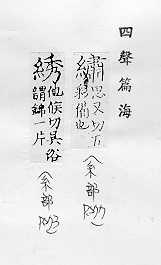 四聲篇海
繡 思又切五
彩備也
(糸部
綉 他候切吳俗
謂綿一片
(糸部